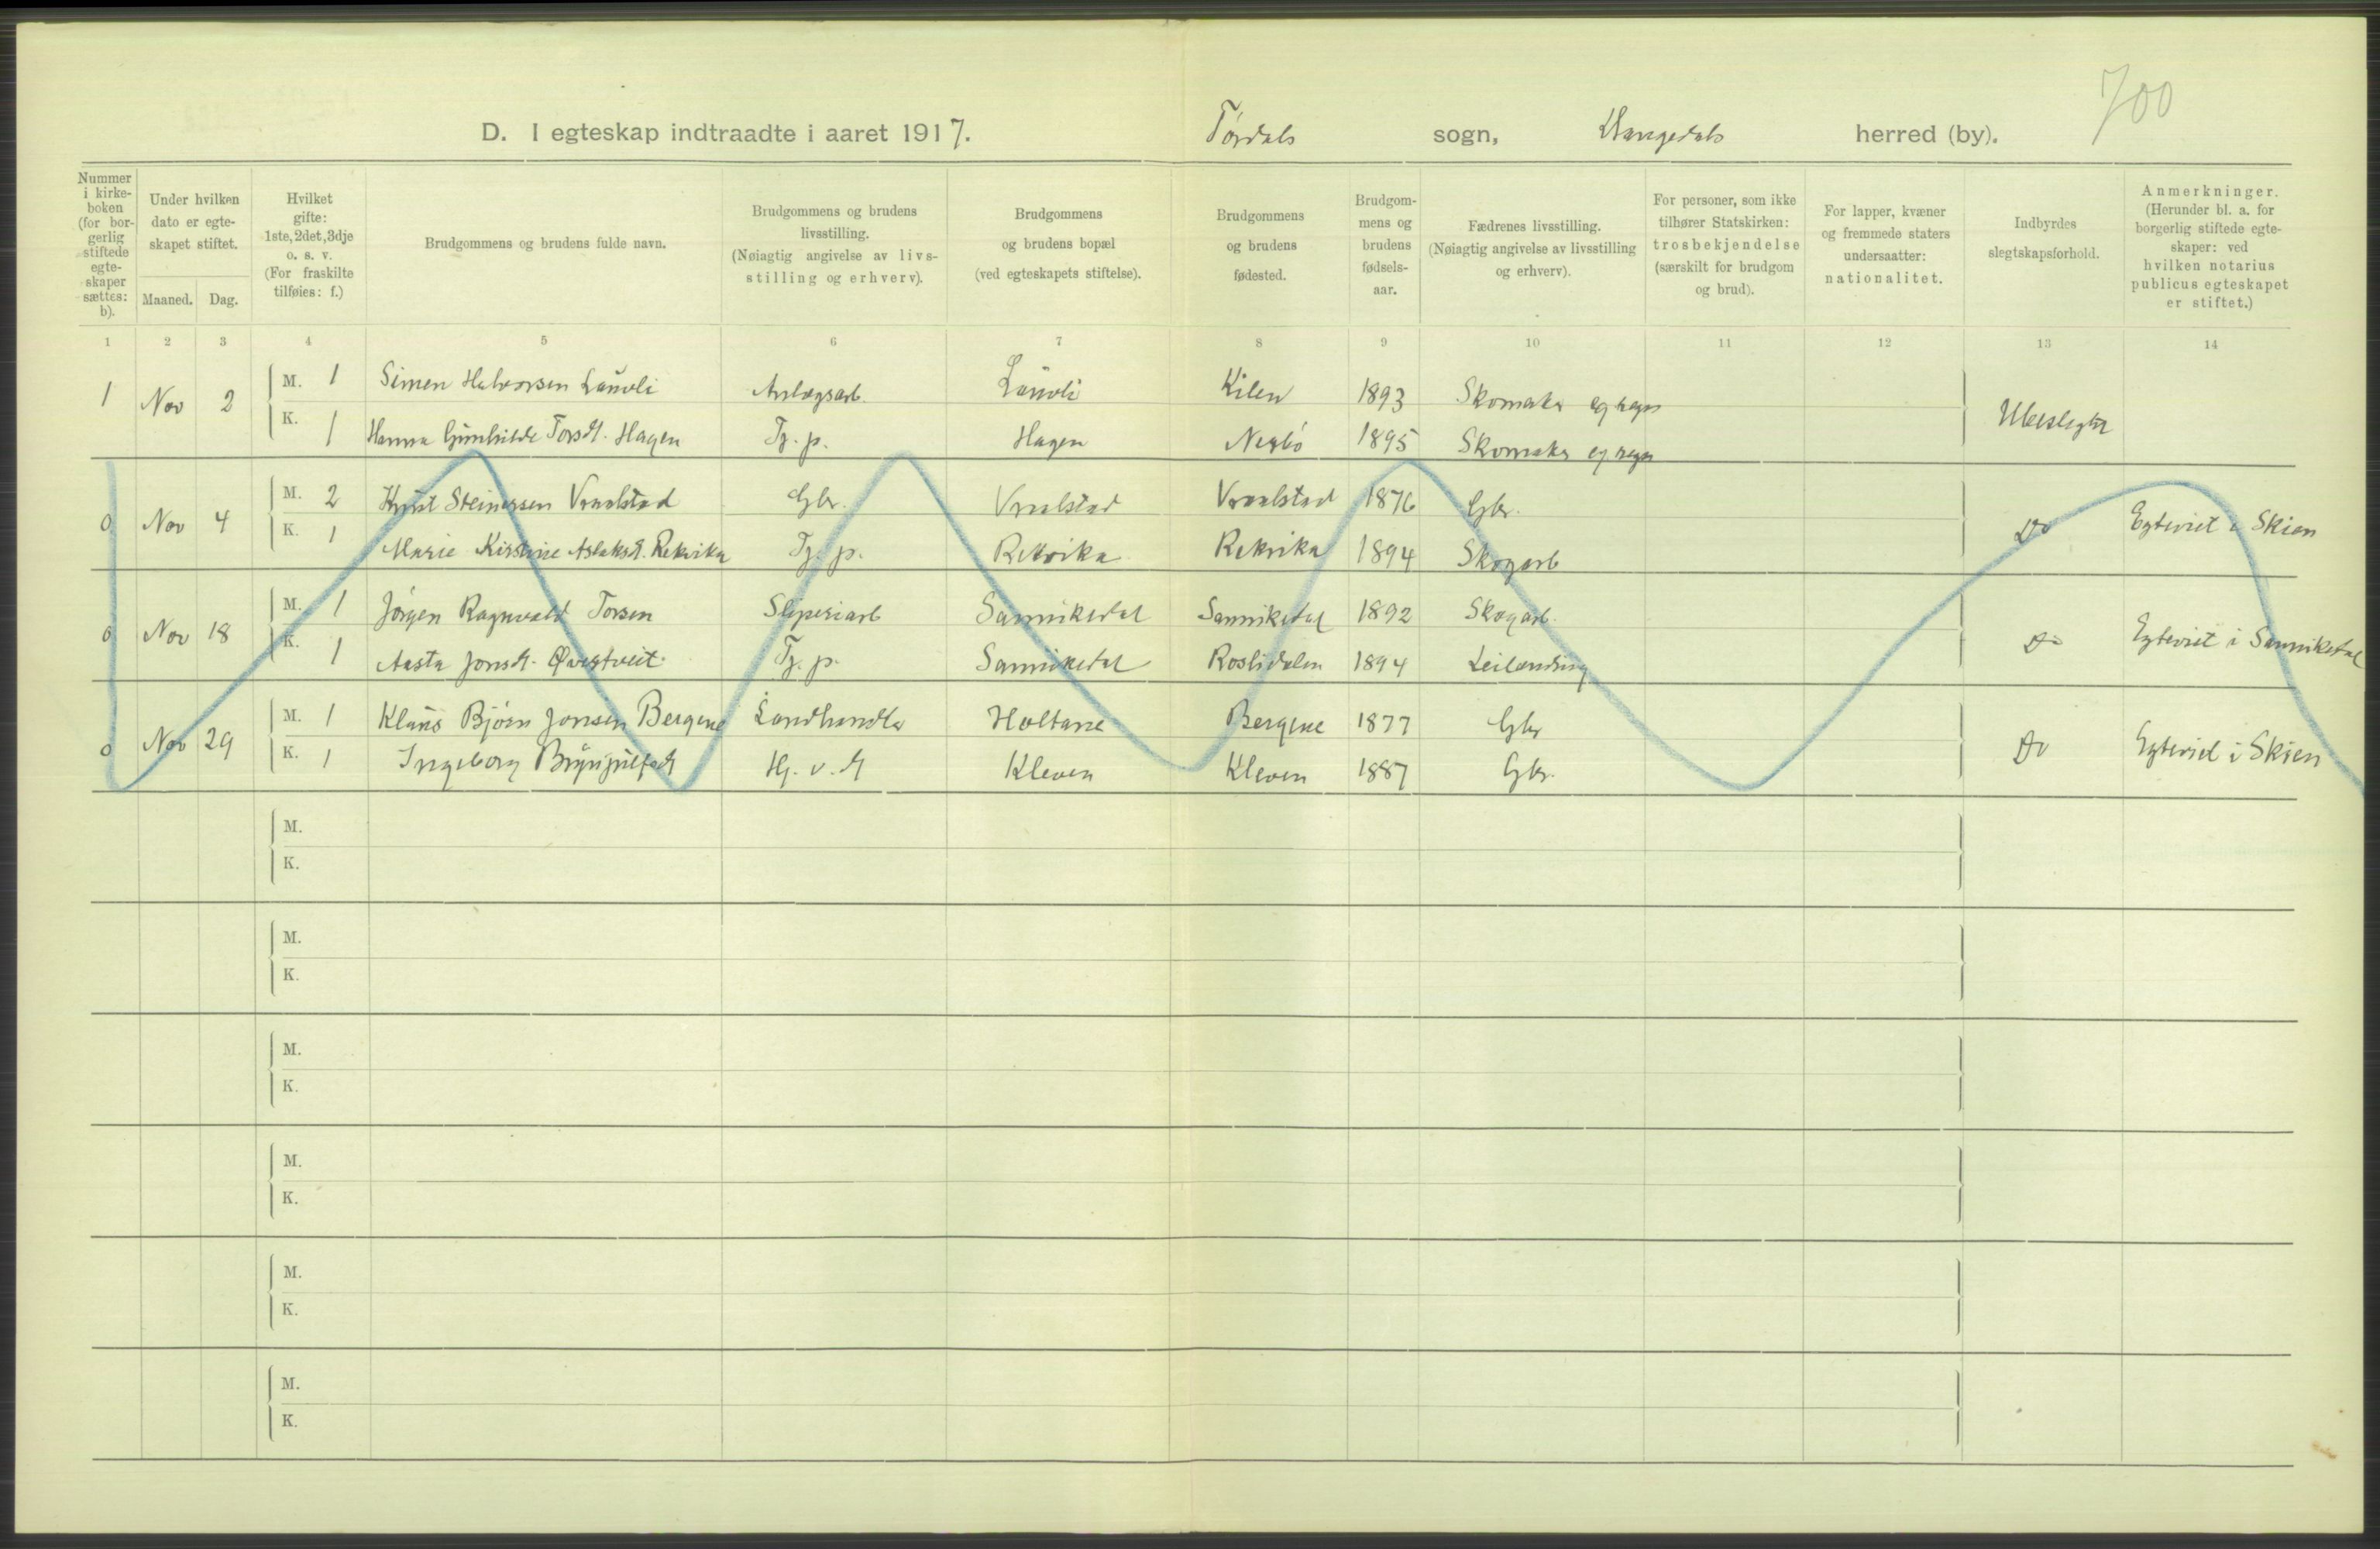 700
D. I egteskap indtraadte i aaret 1917. Tørdals sogn, herred (by).
Nummer i kirke-boken (for bor-gerlig stiftede egte-skaper sættes: b).
Under hvilken dato er egte-skapet stiftet.
Maaned. Dag.
Hvilket gifte: 1ste, 2det, 3dje o. s. v. (For fraskilte tilføies: f.)
Brudgommens og brudens fulde navn.
Brudgommens og brudens livsstilling. (Nøiagtig angivelse av livs-stilling og erhverv).
Brudgommens og brudens bopæl (ved egteskapets stiftelse).
Brudgommens og brudens fødested.
Brudgom-mens og brudens fødsels-aar.
Fædrenes livsstilling. (Nøiagtig angivelse av livsstilling og erhverv).
For personer, som ikke tilhører Statskirken: trosbekjendelse (særskilt for brudgom og brud).
For lapper, kvæner og fremmede staters undersaatter: nationalitet.
Indbyrdes slegtskapsforhold.
Anmerkninger. (Herunder bl. a. for borgerlig stiftede egte-skaper: ved hvilken notarius publicus egteskapet er stiftet.)
1 2 3 4 5 6 7 8 9 10 11 12 13 14
1 Nov 2 M. 1 Simen Halvorsen Lauvli Anlægsarb. Lauvli Kilen 1893 Skomaker Ubeslegtet
K. 1 Hanna Gunhilde Torsdt. Hagen Tj. p. Hagen 1895 Skomaker
0 Nov 4 M. 2 Knut Steinarsen Vraalstad Gbr. Vraalstad Vraalstad 1876 Gbr. Do Egteviet i Skien
K. 1 Marie Kirstine Aslaksdt. Rekvika Tj. p. Rekvika Rekvika 1894 Skogarb
0 Nov 18 M. 1 Jørgen Ragnvald Torsen Sliperiarb Sannikedal Sannikedal 1892 Skogarb. Do Egteviet i Sannikedal
K. 1 Aasta Jonsdt. Øvestveit Tj. p. Sannikedal Roslidalen 1894 Leilænding
0 Nov 29 M. 1 Klaus Bjørn Jonsen Bergene Landhandler Holtane Bergene 1877 Gbr Do Egteviet i Skien
K. 1 Ingeborg Brynjulfsdt Hj. v. dt Kleven Kleven 1887 Gbr.
M.
K.
M.
K.
M.
K.
M.
K.
M.
K.
M.
K.